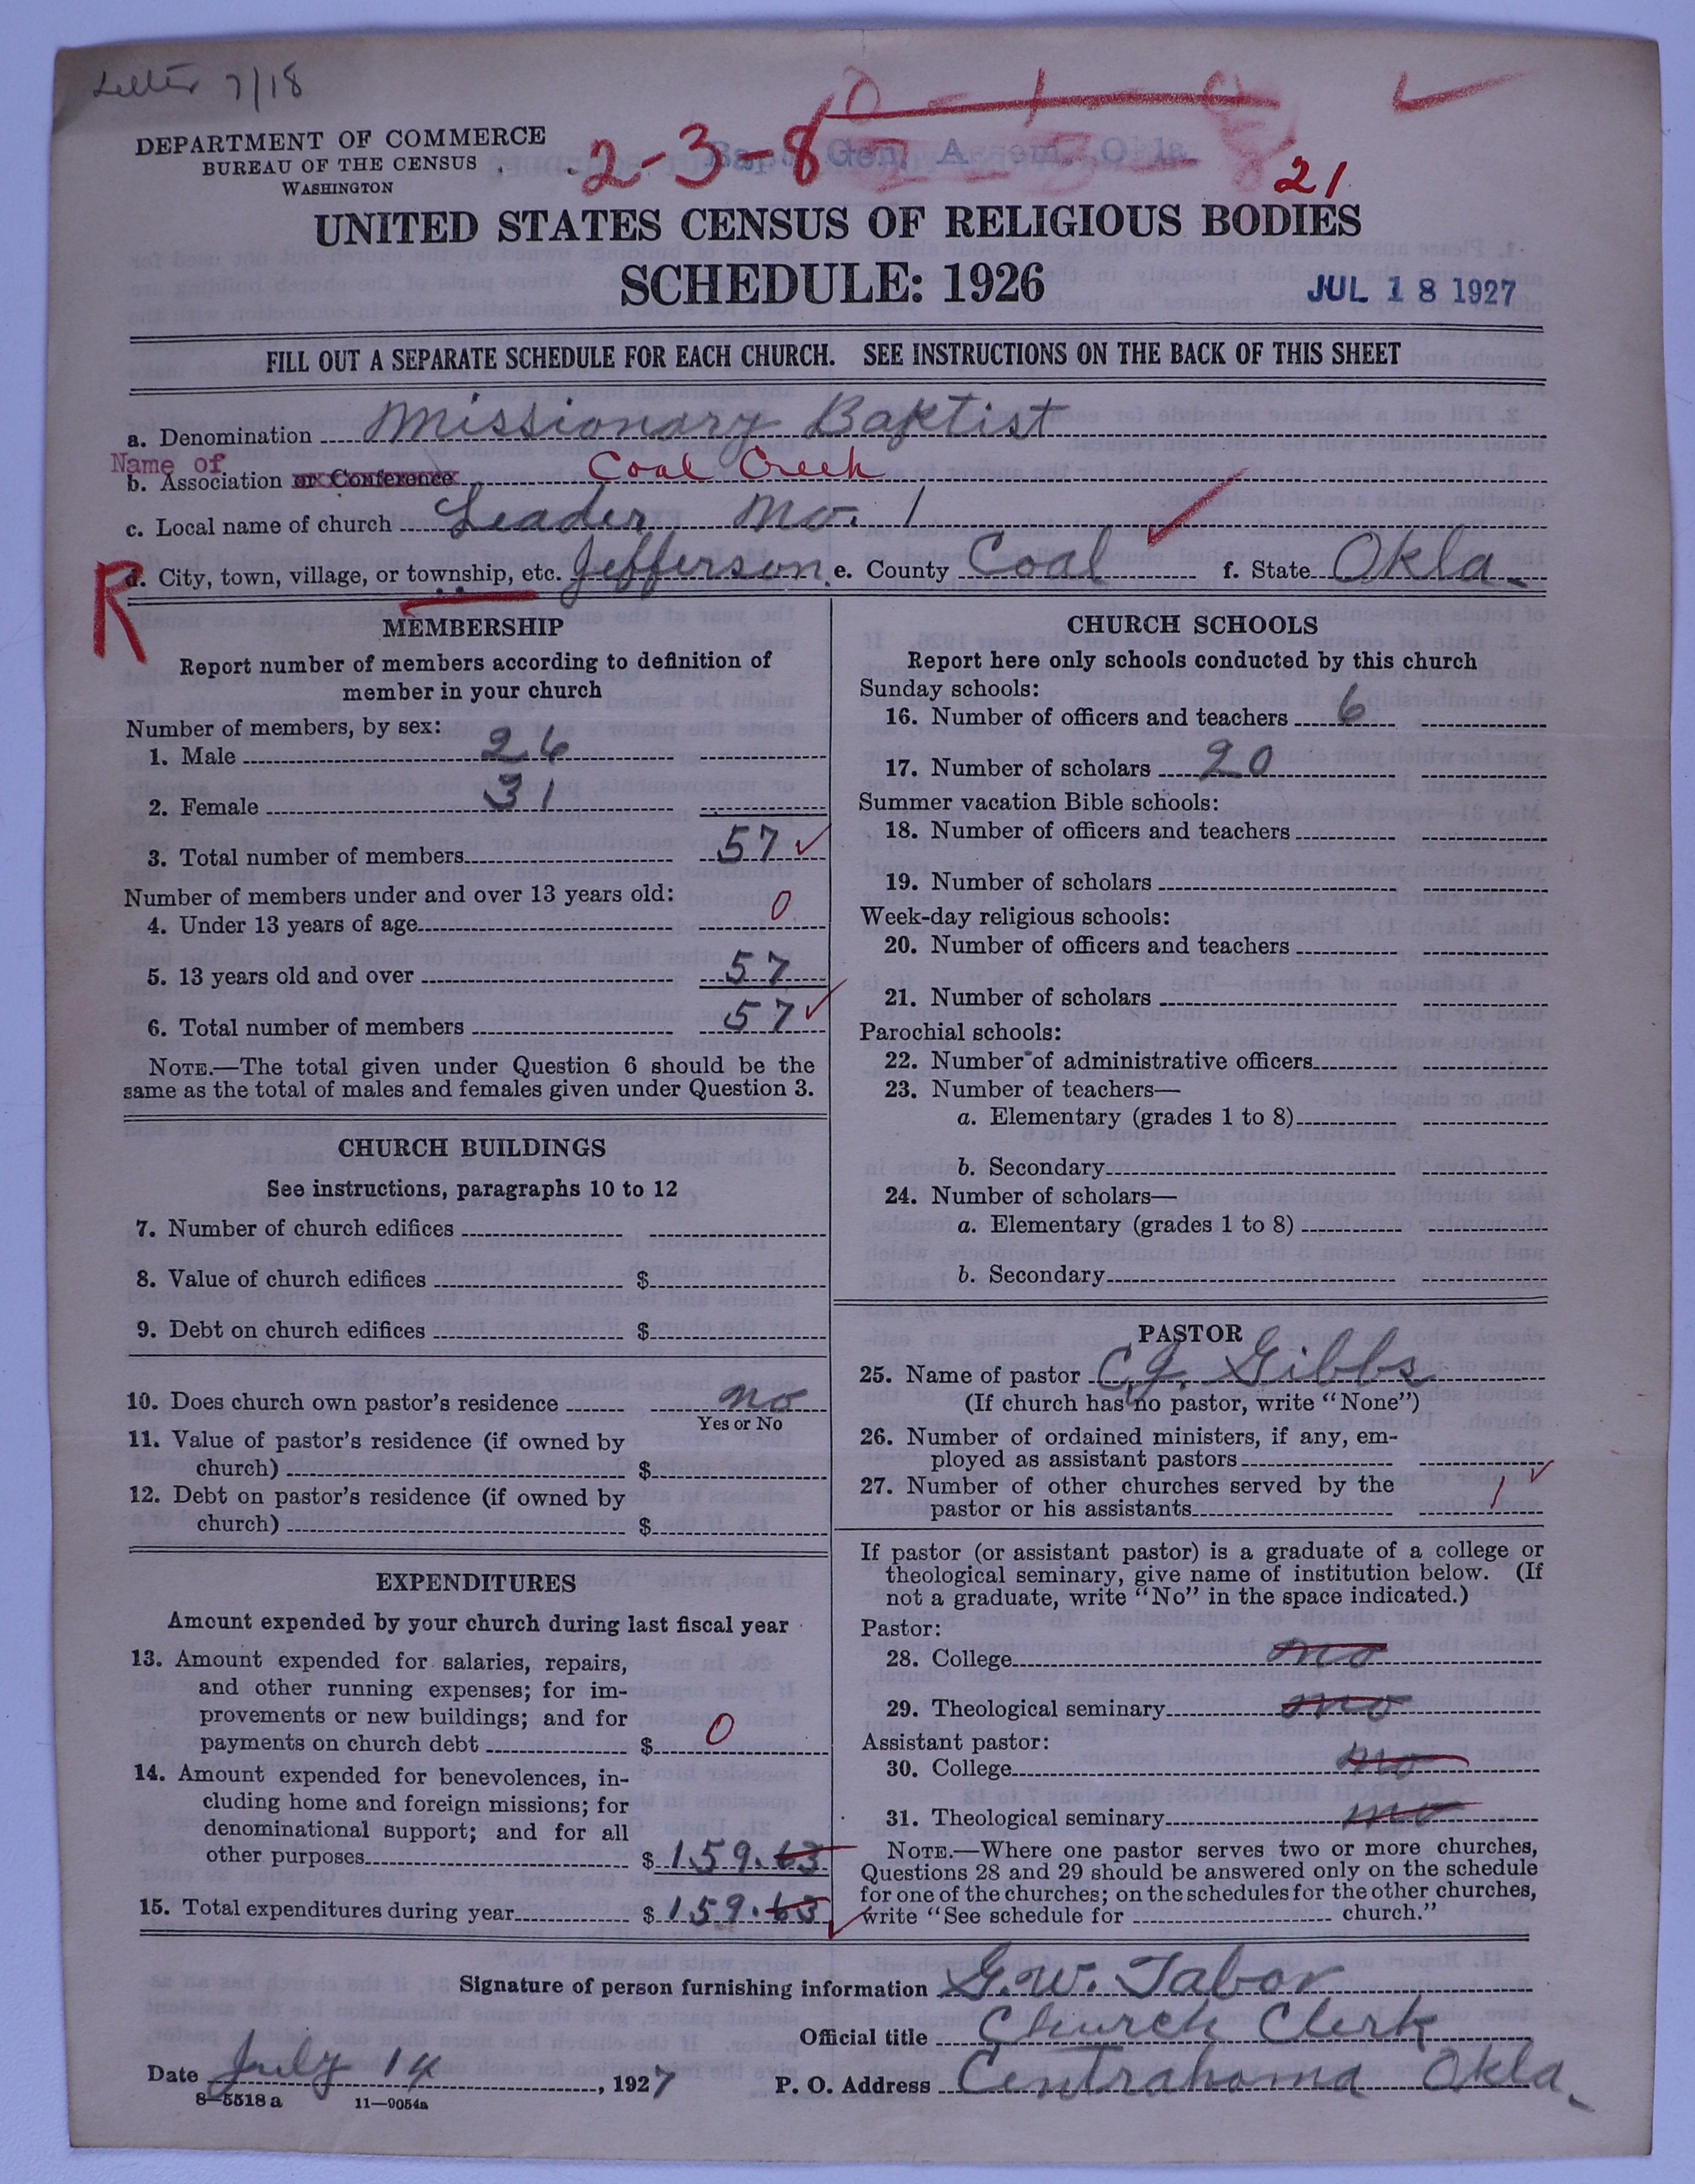 Letter 7/18
DEPARTMENT OF COMMERCE
BUREAU OF THE CENSUS
WASHINGTON
2-3-8
21
UNITED STATES CENSUS OF RELIGIOUS BODIES
SCHEDULE: 1926
JUL 18 1927
FILL OUT A SEPARATE SCHEDULE FOR EACH CHURCH. SEE INSTRUCTIONS ON THE BACK OF THIS SHEET
a. Denomination Missionary Baptist
Name of
b. Association or Conference Coal Creek
c. Local name of church Leader No. 1
R
d. City, town, village, or township, etc. Jefferson e. County Coal f. State Okla.
MEMBERSHIP
Report number of members according to definition of
member in your church
Number of members, by sex:
1. Male 26
2. Female 31
3. Total number of members 57
Number of members under and over 13 years old:
4. Under 13 years of age 0
5. 13 years old and over 57
6. Total number of members 57
NOTE.—The total given under Question 6 should be the
same as the total of males and females given under Question 3.
CHURCH BUILDINGS
See instructions, paragraphs 10 to 12
7. Number of church edifices
8. Value of church edifices $
9. Debt on church edifices $
10. Does church own pastor's residence no
Yes or No
11. Value of pastor's residence (if owned by
church) $
12. Debt on pastor's residence (if owned by
church) $
EXPENDITURES
Amount expended by your church during last fiscal year
13. Amount expended for salaries, repairs,
and other running expenses; for im-
provements or new buildings; and for
payments on church debt $ 0
14. Amount expended for benevolences, in-
cluding home and foreign missions; for
denominational support; and for all
other purposes $ 159.63
15. Total expenditures during year $ 159.63
CHURCH SCHOOLS
Report here only schools conducted by this church
Sunday schools:
16. Number of officers and teachers 6
17. Number of scholars 20
Summer vacation Bible schools:
18. Number of officers and teachers
19. Number of scholars
Week-day religious schools:
20. Number of officers and teachers
21. Number of scholars
Parochial schools:
22. Number of administrative officers
23. Number of teachers—
a. Elementary (grades 1 to 8)
b. Secondary
24. Number of scholars—
a. Elementary (grades 1 to 8)
b. Secondary
PASTOR
25. Name of pastor C. J. Gibbs
(If church has no pastor, write "None")
26. Number of ordained ministers, if any, em-
ployed as assistant pastors
27. Number of other churches served by the
pastor or his assistants 1
If pastor (or assistant pastor) is a graduate of a college or
theological seminary, give name of institution below. (If
not a graduate, write "No" in the space indicated.)
Pastor:
28. College no
29. Theological seminary no
Assistant pastor:
30. College no
31. Theological seminary no
NOTE.—Where one pastor serves two or more churches,
Questions 28 and 29 should be answered only on the schedule
for one of the churches; on the schedules for the other churches,
write "See schedule for church."
Signature of person furnishing information G. W. Tabor
Official title Church Clerk
Date July 14, 1927 P. O. Address Centrahoma Okla.
8-5518 a 11—9054a